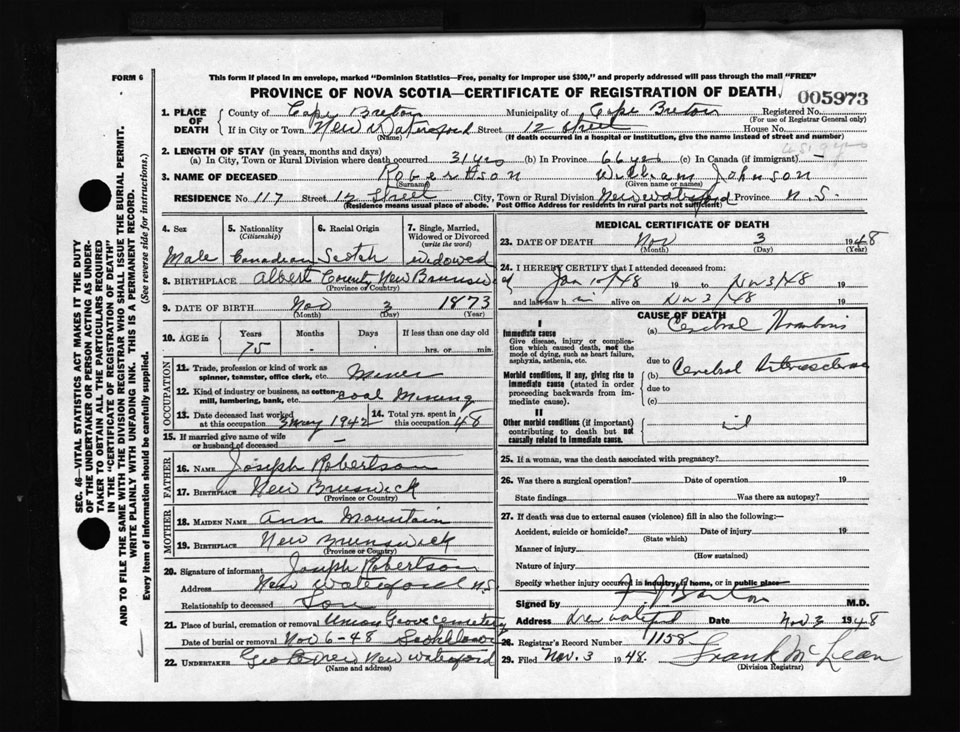 FORM 6
This form if placed in an envelope, marked "Dominion Statistics—Free, penalty for improper use $300," and properly addressed will pass through the mail "FREE"
PROVINCE OF NOVA SCOTIA—CERTIFICATE OF REGISTRATION OF DEATH
005973
1. PLACE OF DEATH
County of Cape Breton Municipality of Cape Breton Registered No.
(For use of Registrar General only)
If in City or Town New Waterford Street 12 Street House No.
(Name) (If death occurred in a hospital or institution, give the name instead of street and number)
2. LENGTH OF STAY (in years, months and days)
(a) In City, Town or Rural Division where death occurred 31 yrs (b) In Province 66 yrs (c) In Canada (if immigrant) —
3. NAME OF DECEASED Robertson William Johnson
(Surname) (Given name or names)
RESIDENCE No. 117 Street 12 Street City, Town or Rural Division New Waterford Province N.S.
(Residence means usual place of abode. Post Office Address for residents in rural parts not sufficient)
4. Sex Male
5. Nationality (Citizenship) Canadian
6. Racial Origin Scotch
7. Single, Married, Widowed or Divorced (write the word) widowed
8. BIRTHPLACE Albert County New Brunswick
(Province or Country)
9. DATE OF BIRTH Nov 3 1873
(Month) (Day) (Year)
10. AGE in Years Months Days If less than one day old
75 - - hrs. or min.
OCCUPATION
11. Trade, profession or kind of work as spinner, teamster, office clerk, etc. Miner
12. Kind of industry or business, as cotton-mill, lumbering, bank, etc. Coal Mining
13. Date deceased last worked at this occupation 3 May 1942
14. Total yrs. spent in this occupation 48
15. If married give name of wife or husband of deceased —
FATHER
16. NAME Joseph Robertson
17. BIRTHPLACE New Brunswick
(Province or Country)
MOTHER
18. MAIDEN NAME Ann Mountain
19. BIRTHPLACE New Brunswick
(Province or Country)
20. Signature of informant Joseph Robertson
Address New Waterford N.S.
Relationship to deceased Son
21. Place of burial, cremation or removal Union Grove cemetery
Date of burial or removal Nov 6-48
22. UNDERTAKER Geo New Waterford
(Name and address)
MEDICAL CERTIFICATE OF DEATH
23. DATE OF DEATH Nov 3 1948
(Month) (Day) (Year)
24. I HEREBY CERTIFY that I attended deceased from:
Jan 10/48 19 to Nov 3/48 19
and last saw h im alive on Nov 3/48 19
CAUSE OF DEATH
I
Immediate cause
Give disease, injury or complication which caused death, not the mode of dying, such as heart failure, asphyxia, asthenia, etc.
(a) Cerebral Thrombosis
due to
Morbid conditions, if any, giving rise to immediate cause (stated in order proceeding backwards from immediate cause).
(b) Cerebral Arteriosclerosis
due to
(c)
II
Other morbid conditions (if important) contributing to death but not causally related to immediate cause.
nil
25. If a woman, was the death associated with pregnancy?
26. Was there a surgical operation? Date of operation 19
State findings Was there an autopsy?
27. If death was due to external causes (violence) fill in also the following:—
Accident, suicide or homicide? Date of injury 19
(State which)
Manner of injury
(How sustained)
Nature of injury
Specify whether injury occurred in industry, home, or in public place
Signed by M.D.
Address New Waterford Date Nov 3 1948
28. Registrar's Record Number 1158
29. Filed Nov. 3 1948. Frank McLean
(Division Registrar)
SEC. 46—VITAL STATISTICS ACT MAKES IT THE DUTY
OF THE UNDERTAKER OR PERSON ACTING AS UNDER-
TAKER TO OBTAIN ALL THE PARTICULARS REQUIRED
IN THE "CERTIFICATE OF REGISTRATION OF DEATH"
AND TO FILE THE SAME WITH THE DIVISION REGISTRAR WHO SHALL ISSUE THE BURIAL PERMIT.
WRITE PLAINLY WITH UNFADING INK. THIS IS A PERMANENT RECORD.
Every item of information should be carefully supplied. (See reverse side for instructions.)